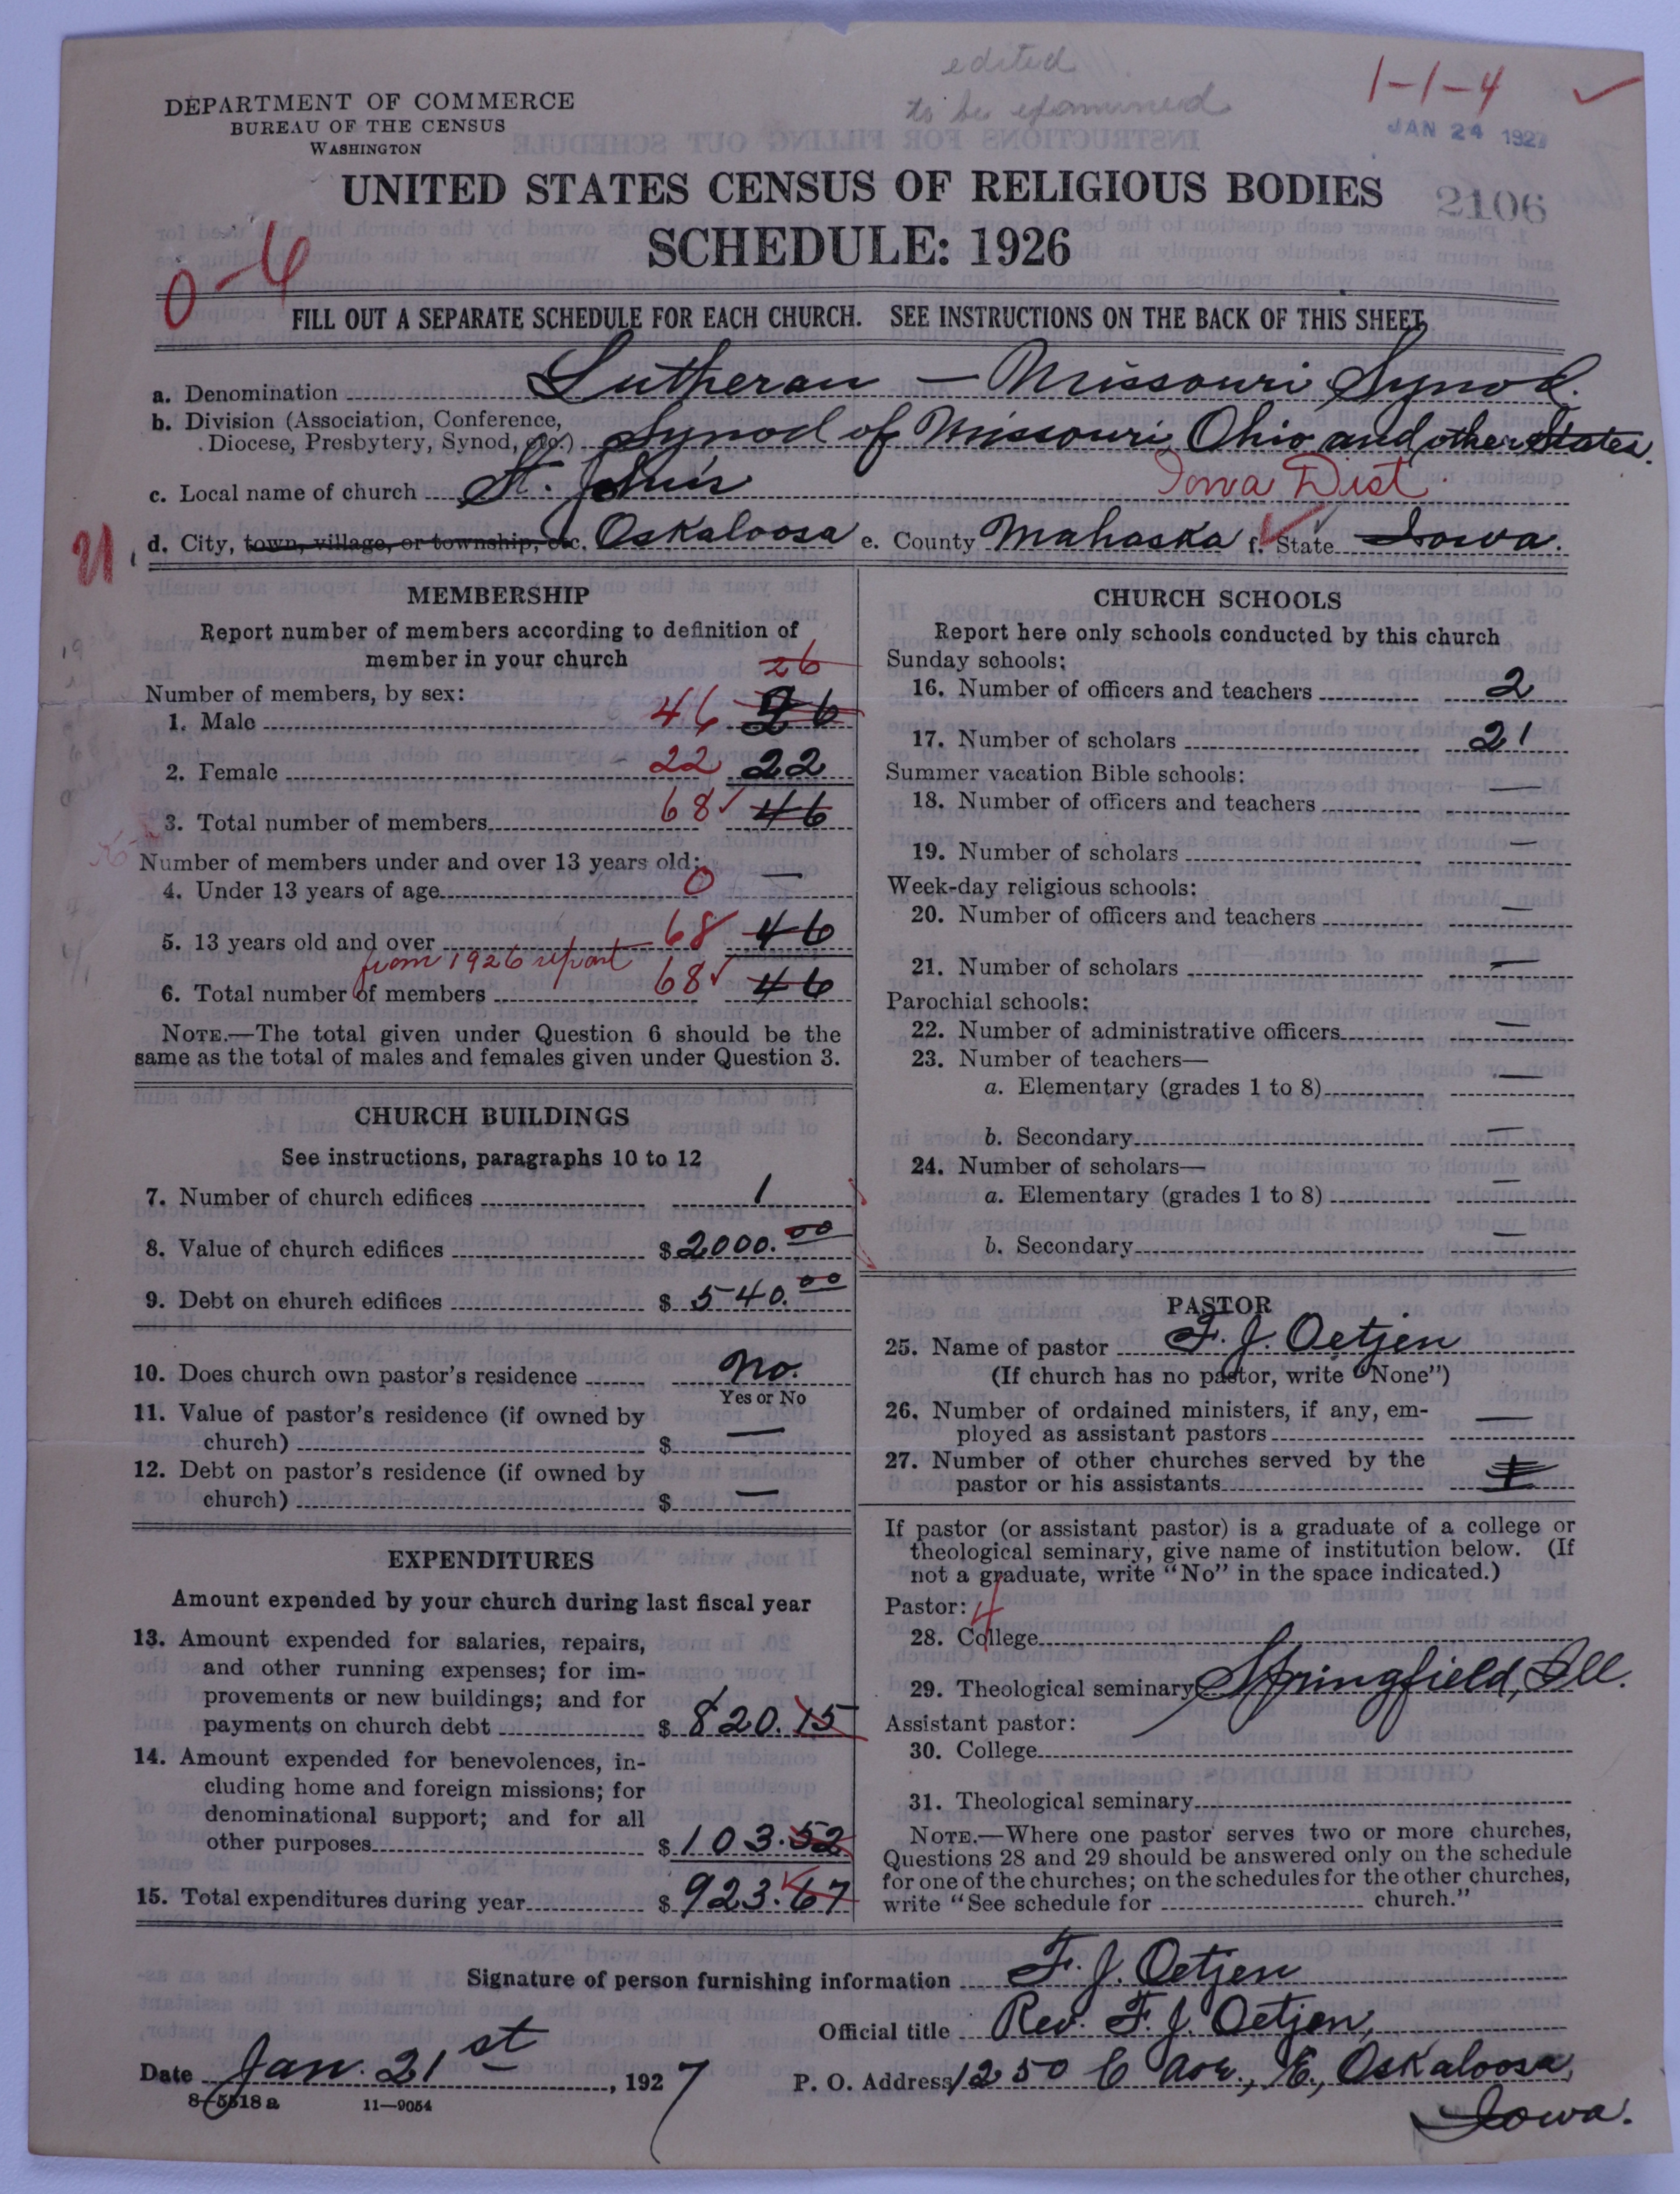 edited
to be examined
1-1-4
JAN 24 192
2106
DEPARTMENT OF COMMERCE
BUREAU OF THE CENSUS
WASHINGTON
UNITED STATES CENSUS OF RELIGIOUS BODIES
SCHEDULE: 1926
0-6
FILL OUT A SEPARATE SCHEDULE FOR EACH CHURCH. SEE INSTRUCTIONS ON THE BACK OF THIS SHEET
a. Denomination Lutheran — Missouri Synod.
b. Division (Association, Conference,
Diocese, Presbytery, Synod, etc.) Synod of Missouri, Ohio and other States.
c. Local name of church St. John's
Iowa Dist.
d. City, town, village, or township, etc. Oskaloosa e. County Mahaska f. State Iowa.
MEMBERSHIP
Report number of members according to definition of
member in your church
26
Number of members, by sex:
1. Male 46 26
2. Female 22 22
3. Total number of members 68 46
Number of members under and over 13 years old:
4. Under 13 years of age 0 —
5. 13 years old and over 68 46
from 1926 report
6. Total number of members 68 46
NOTE.—The total given under Question 6 should be the
same as the total of males and females given under Question 3.
CHURCH BUILDINGS
See instructions, paragraphs 10 to 12
7. Number of church edifices 1
8. Value of church edifices $ 2000.00
9. Debt on church edifices $ 540.00
10. Does church own pastor's residence No.
Yes or No
11. Value of pastor's residence (if owned by
church) $ —
12. Debt on pastor's residence (if owned by
church) $ —
EXPENDITURES
Amount expended by your church during last fiscal year
13. Amount expended for salaries, repairs,
and other running expenses; for im-
provements or new buildings; and for
payments on church debt $ 820.15
14. Amount expended for benevolences, in-
cluding home and foreign missions; for
denominational support; and for all
other purposes $ 103.52
15. Total expenditures during year $ 923.67
CHURCH SCHOOLS
Report here only schools conducted by this church
Sunday schools:
16. Number of officers and teachers 2
17. Number of scholars 21
Summer vacation Bible schools:
18. Number of officers and teachers —
19. Number of scholars —
Week-day religious schools:
20. Number of officers and teachers —
21. Number of scholars —
Parochial schools:
22. Number of administrative officers —
23. Number of teachers—
a. Elementary (grades 1 to 8) —
b. Secondary —
24. Number of scholars—
a. Elementary (grades 1 to 8) —
b. Secondary —
PASTOR
25. Name of pastor F. J. Oetjen
(If church has no pastor, write "None")
26. Number of ordained ministers, if any, em-
ployed as assistant pastors —
27. Number of other churches served by the
pastor or his assistants
If pastor (or assistant pastor) is a graduate of a college or
theological seminary, give name of institution below. (If
not a graduate, write "No" in the space indicated.)
Pastor: 4
28. College
29. Theological seminary Springfield, Ill.
Assistant pastor:
30. College
31. Theological seminary
NOTE.—Where one pastor serves two or more churches,
Questions 28 and 29 should be answered only on the schedule
for one of the churches; on the schedules for the other churches,
write "See schedule for church."
Signature of person furnishing information F. J. Oetjen
Official title Rev. F. J. Oetjen,
Date Jan. 21st, 1927
P. O. Address 1250 C Ave., E., Oskaloosa,
Iowa.
8-5518 a 11—9054